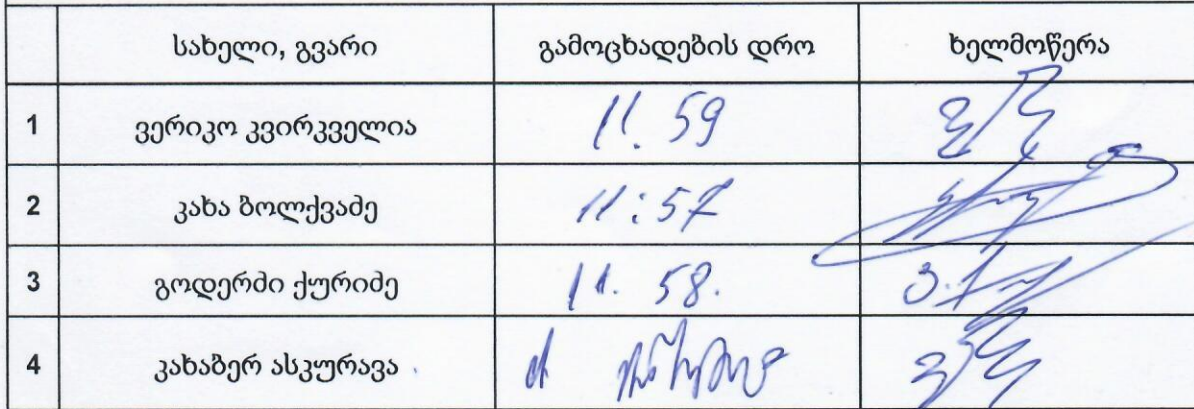 სახელი, გვარი გამოცხადების დრო ხელმოწერა
1 ვერიკო კვირკველია 11. 59
2 კახა ბოლქვაძე 11:57
3 გოდერძი ქურიძე 11. 58.
4 კახაბერ ასკურავა